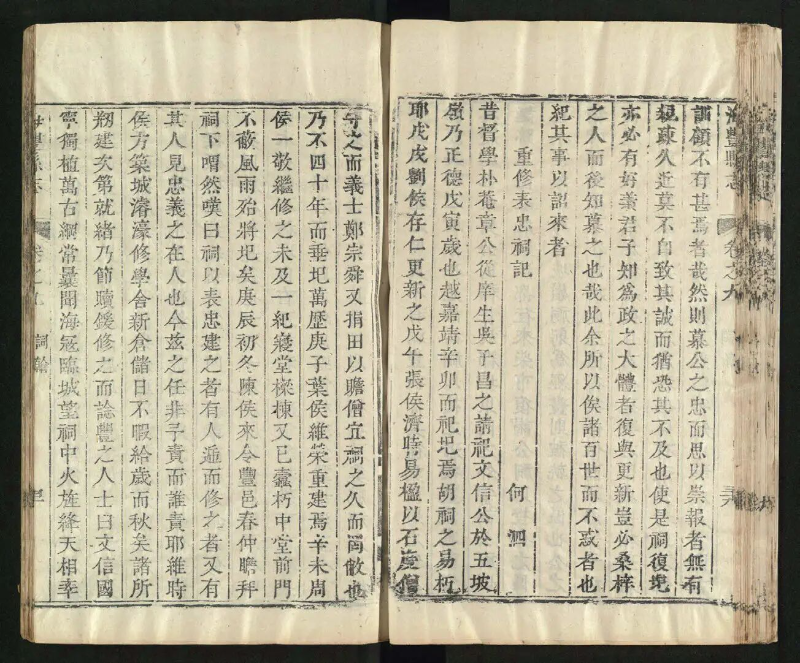 海豐縣志 卷之九
訓顧不有甚焉者哉然則慕公之忠而思以崇報者無有
疎久近莫不自致其誠而猶恐其不及也使是祠復圮
亦必有好義君子知為政之大體者復與更新豈必桑梓
之人而後知慕之也哉此余所以俟諸百世而不惑者也
紀其事以詔來者
重修表忠祠記
何泗
昔督學朴菴章公從庠生吳子昌之請祀文信公於五坡
嶺乃正德戊寅歲也越嘉靖辛卯而祀圮焉胡祠之易朽
耶戊戌劉侯存仁更新之戊午張侯濟時易楹以石度僧
守之而義士鄭宗舜又捐田以贍僧宜祠之久而尚敝也
乃不四十年而垂圮萬歷庚子葉侯維榮重建焉辛未周
侯一敬繼修之未及一紀寢堂樑棟又巳蠹朽中堂前門
不蔽風雨殆將圮矣庚辰初冬陳侯來令豐邑春仲瞻拜
祠下喟然嘆曰祠以表忠建之者有人通而修之者又有
其人見忠義之在人也今兹之任非予責而誰責耶雖時
侯方築城濬濠修學舍新倉儲日不暇給歲而秋矣諸所
剏建次第就緒乃節贖鍰修之而諗豐之人士曰文信國
寧獨植萬古綱常曩聞海冦臨城望祠中火旌絳天相率
卷之九 詞翰